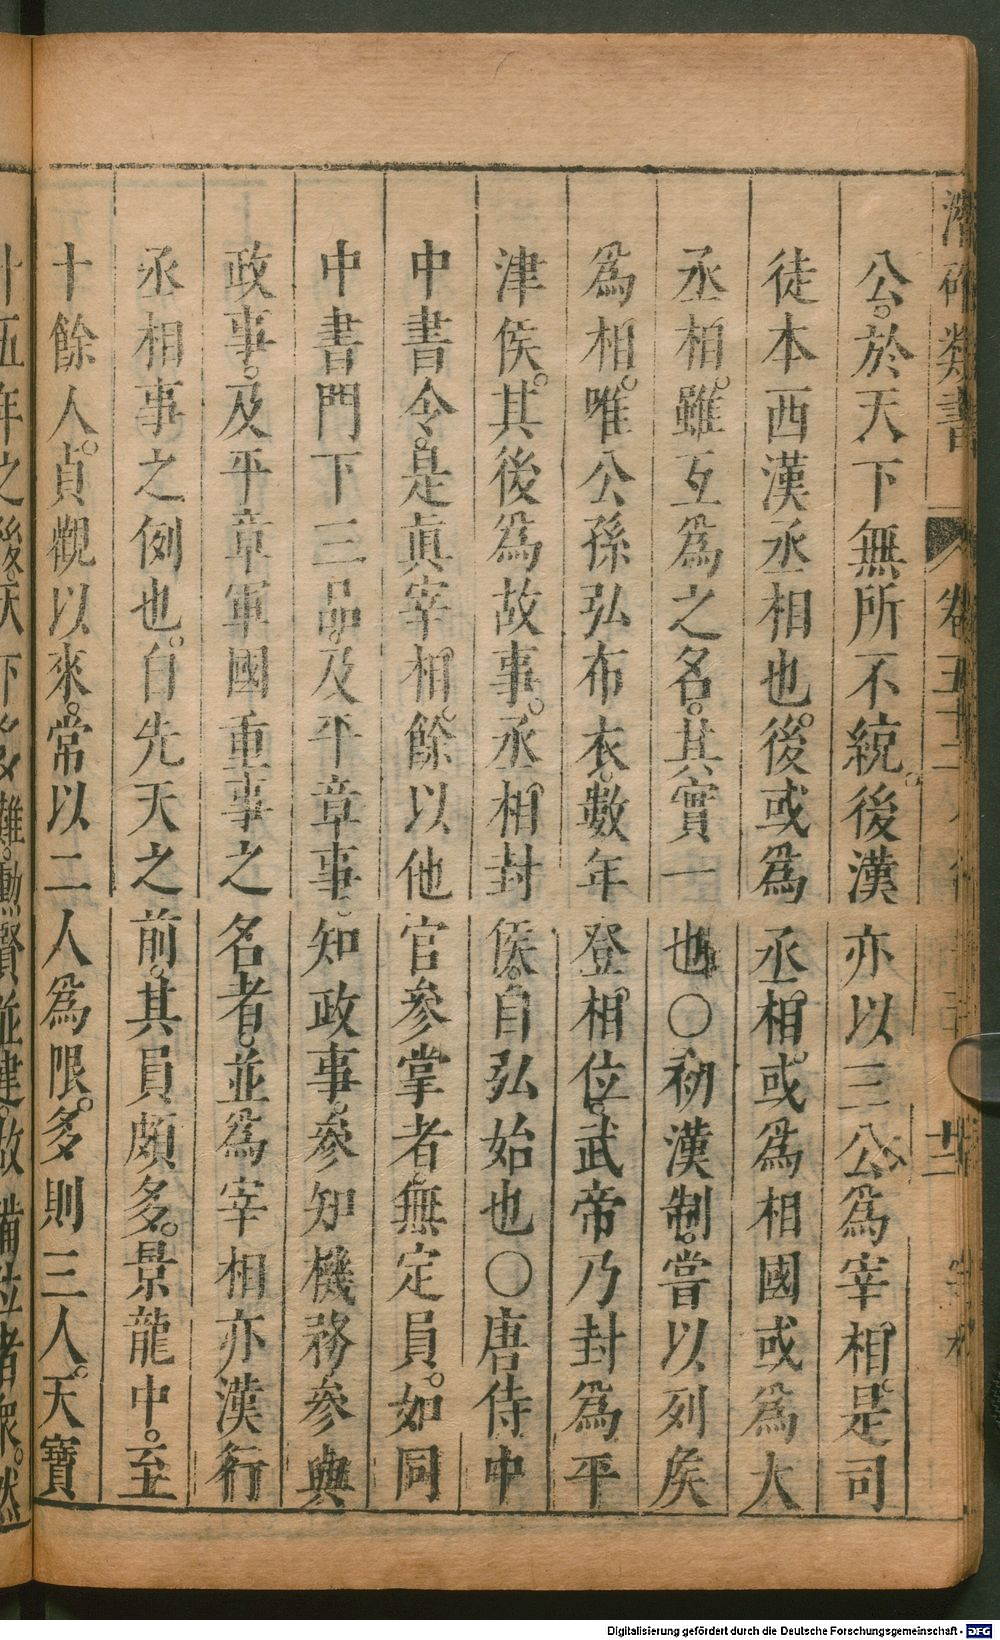 公。於天下無所不統。後漢亦以三公爲宰相。是司
徒本西漢丞相也。後或爲丞相。或爲相國或爲大
丞相。雖互爲之名。其實一也○初漢制。嘗以列矦
爲相。唯公孫弘布衣。數年登相位。武帝乃封爲平
津侯。其後爲故事。丞相封侯。自弘始也○唐侍中
中書令。是眞宰相。餘以他官參掌者無定員。如同
中書門下三品。及平章事。知政事。參知機務參與
政事。及平章軍國重事之名者。並爲宰相亦漢行
丞相事之例也。自先天之前。其員頗多。景龍中。至
十餘人。貞觀以來。常以二人爲限。多則三人。天寶
十五年之後。天下多難。勳賢並建。故備位者衆。然
Digitalisierung gefördert durch die Deutsche Forschungsgemeinschaft - DFG